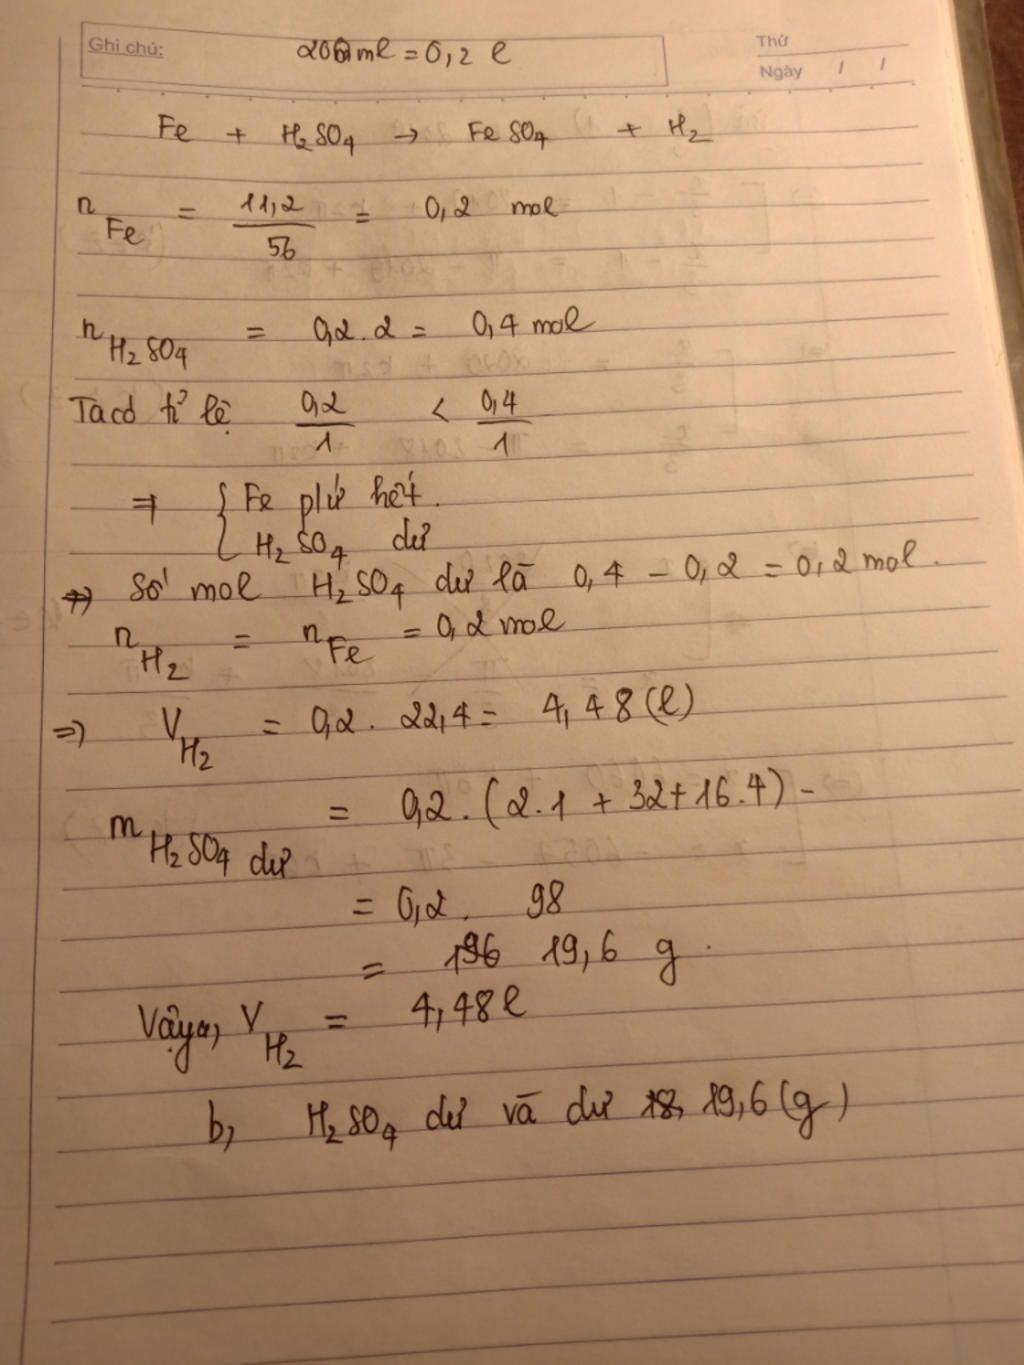 Ghi chú: 200ml = 0,2 l Thứ
Ngày / /
Fe + H₂SO₄ → FeSO₄ + H₂
n Fe = 11,2/56 = 0,2 mol
n H₂SO₄ = 0,2.2 = 0,4 mol
Ta có tỉ lệ 0,2/1 < 0,4/1
⇒ { Fe pứ hết.
H₂SO₄ dư
⇒ Số mol H₂SO₄ dư là 0,4 - 0,2 = 0,2 mol.
n H₂ = n Fe = 0,2 mol
⇒ V H₂ = 0,2. 22,4 = 4,48 (l)
m H₂SO₄ dư = 0,2.(2.1 + 32+16.4) -
= 0,2. 98
= 196 19,6 g.
Vậy a, V H₂ = 4,48 l
b, H₂SO₄ dư và dư 18, 19,6 (g)